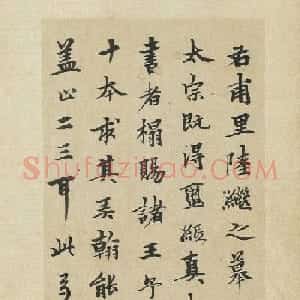 右甫里陸繼之摹
太宗既得蠒紙真
書者榻賜諸王
十本求其柔翰能
蓋止二三耳此
Shufazidao.com